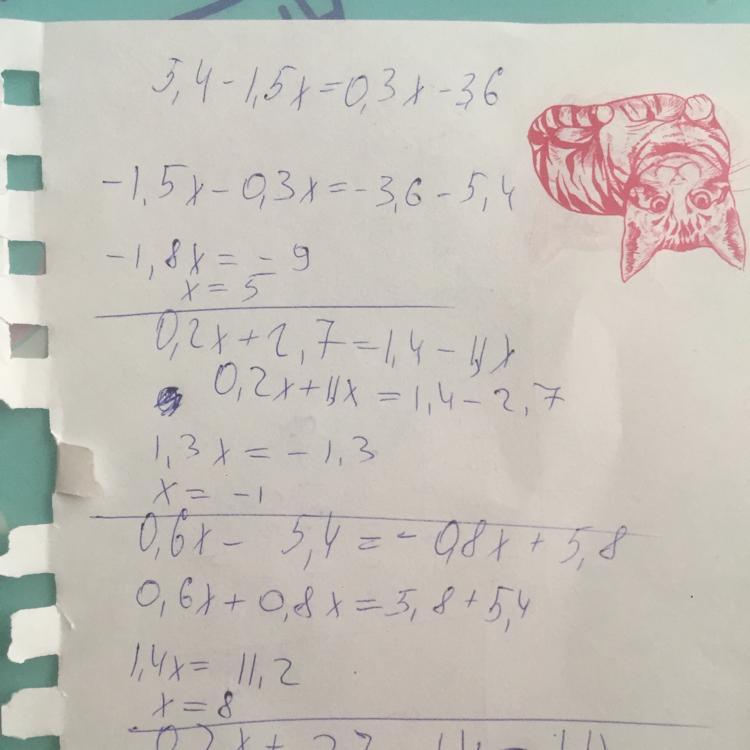 5,4-1,5x=0,3x-3,6
-1,5x-0,3x=-3,6-5,4
-1,8x=-9
x=5
0,2x+2,7=1,4-1,1x
0,2x+1,1x=1,4-2,7
1,3x=-1,3
x=-1
0,6x-5,4=-0,8x+5,8
0,6x+0,8x=5,8+5,4
1,4x=11,2
x=8